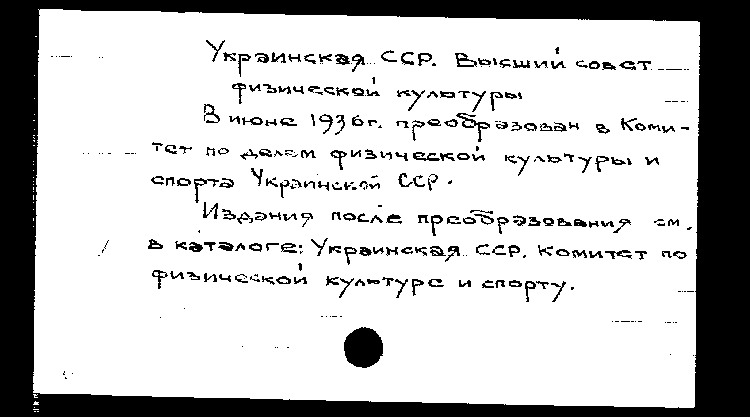 Украинская ССР. Высший совет
физической культуры
В июне 1936г. преобразован в Коми-
тет по делам физической культуры и
спорта Украинской ССР.
Издания после преобразования см.
в каталоге: Украинская ССР. Комитет по
физической культуре и спорту.